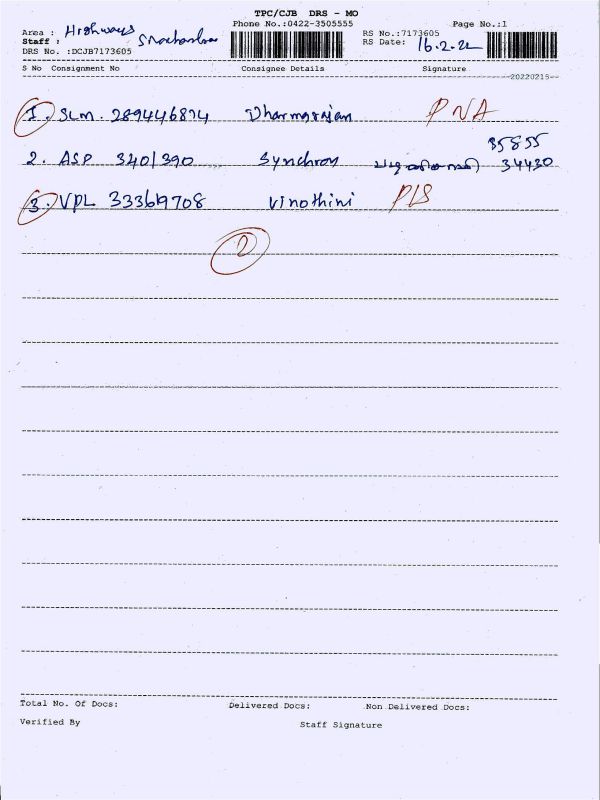 TPC/CJB DRS - MO
Phone No.:0422-3505555 Page No.:1
Area : Highways
Staff :
RS No.:7173605
DRS No. :DCJB7173605
RS Date: 16.2.22
S No Consignment No Consignee Details Signature
20220215
1. SLM. 289446874 Dharmarajan PNA
35855
2. ASP 3401390 Synchron பழனிசாமி 34430
3. VPL 333619708 Vinothini PLS
Total No. Of Docs: Delivered Docs: Non Delivered Docs:
Verified By Staff Signature